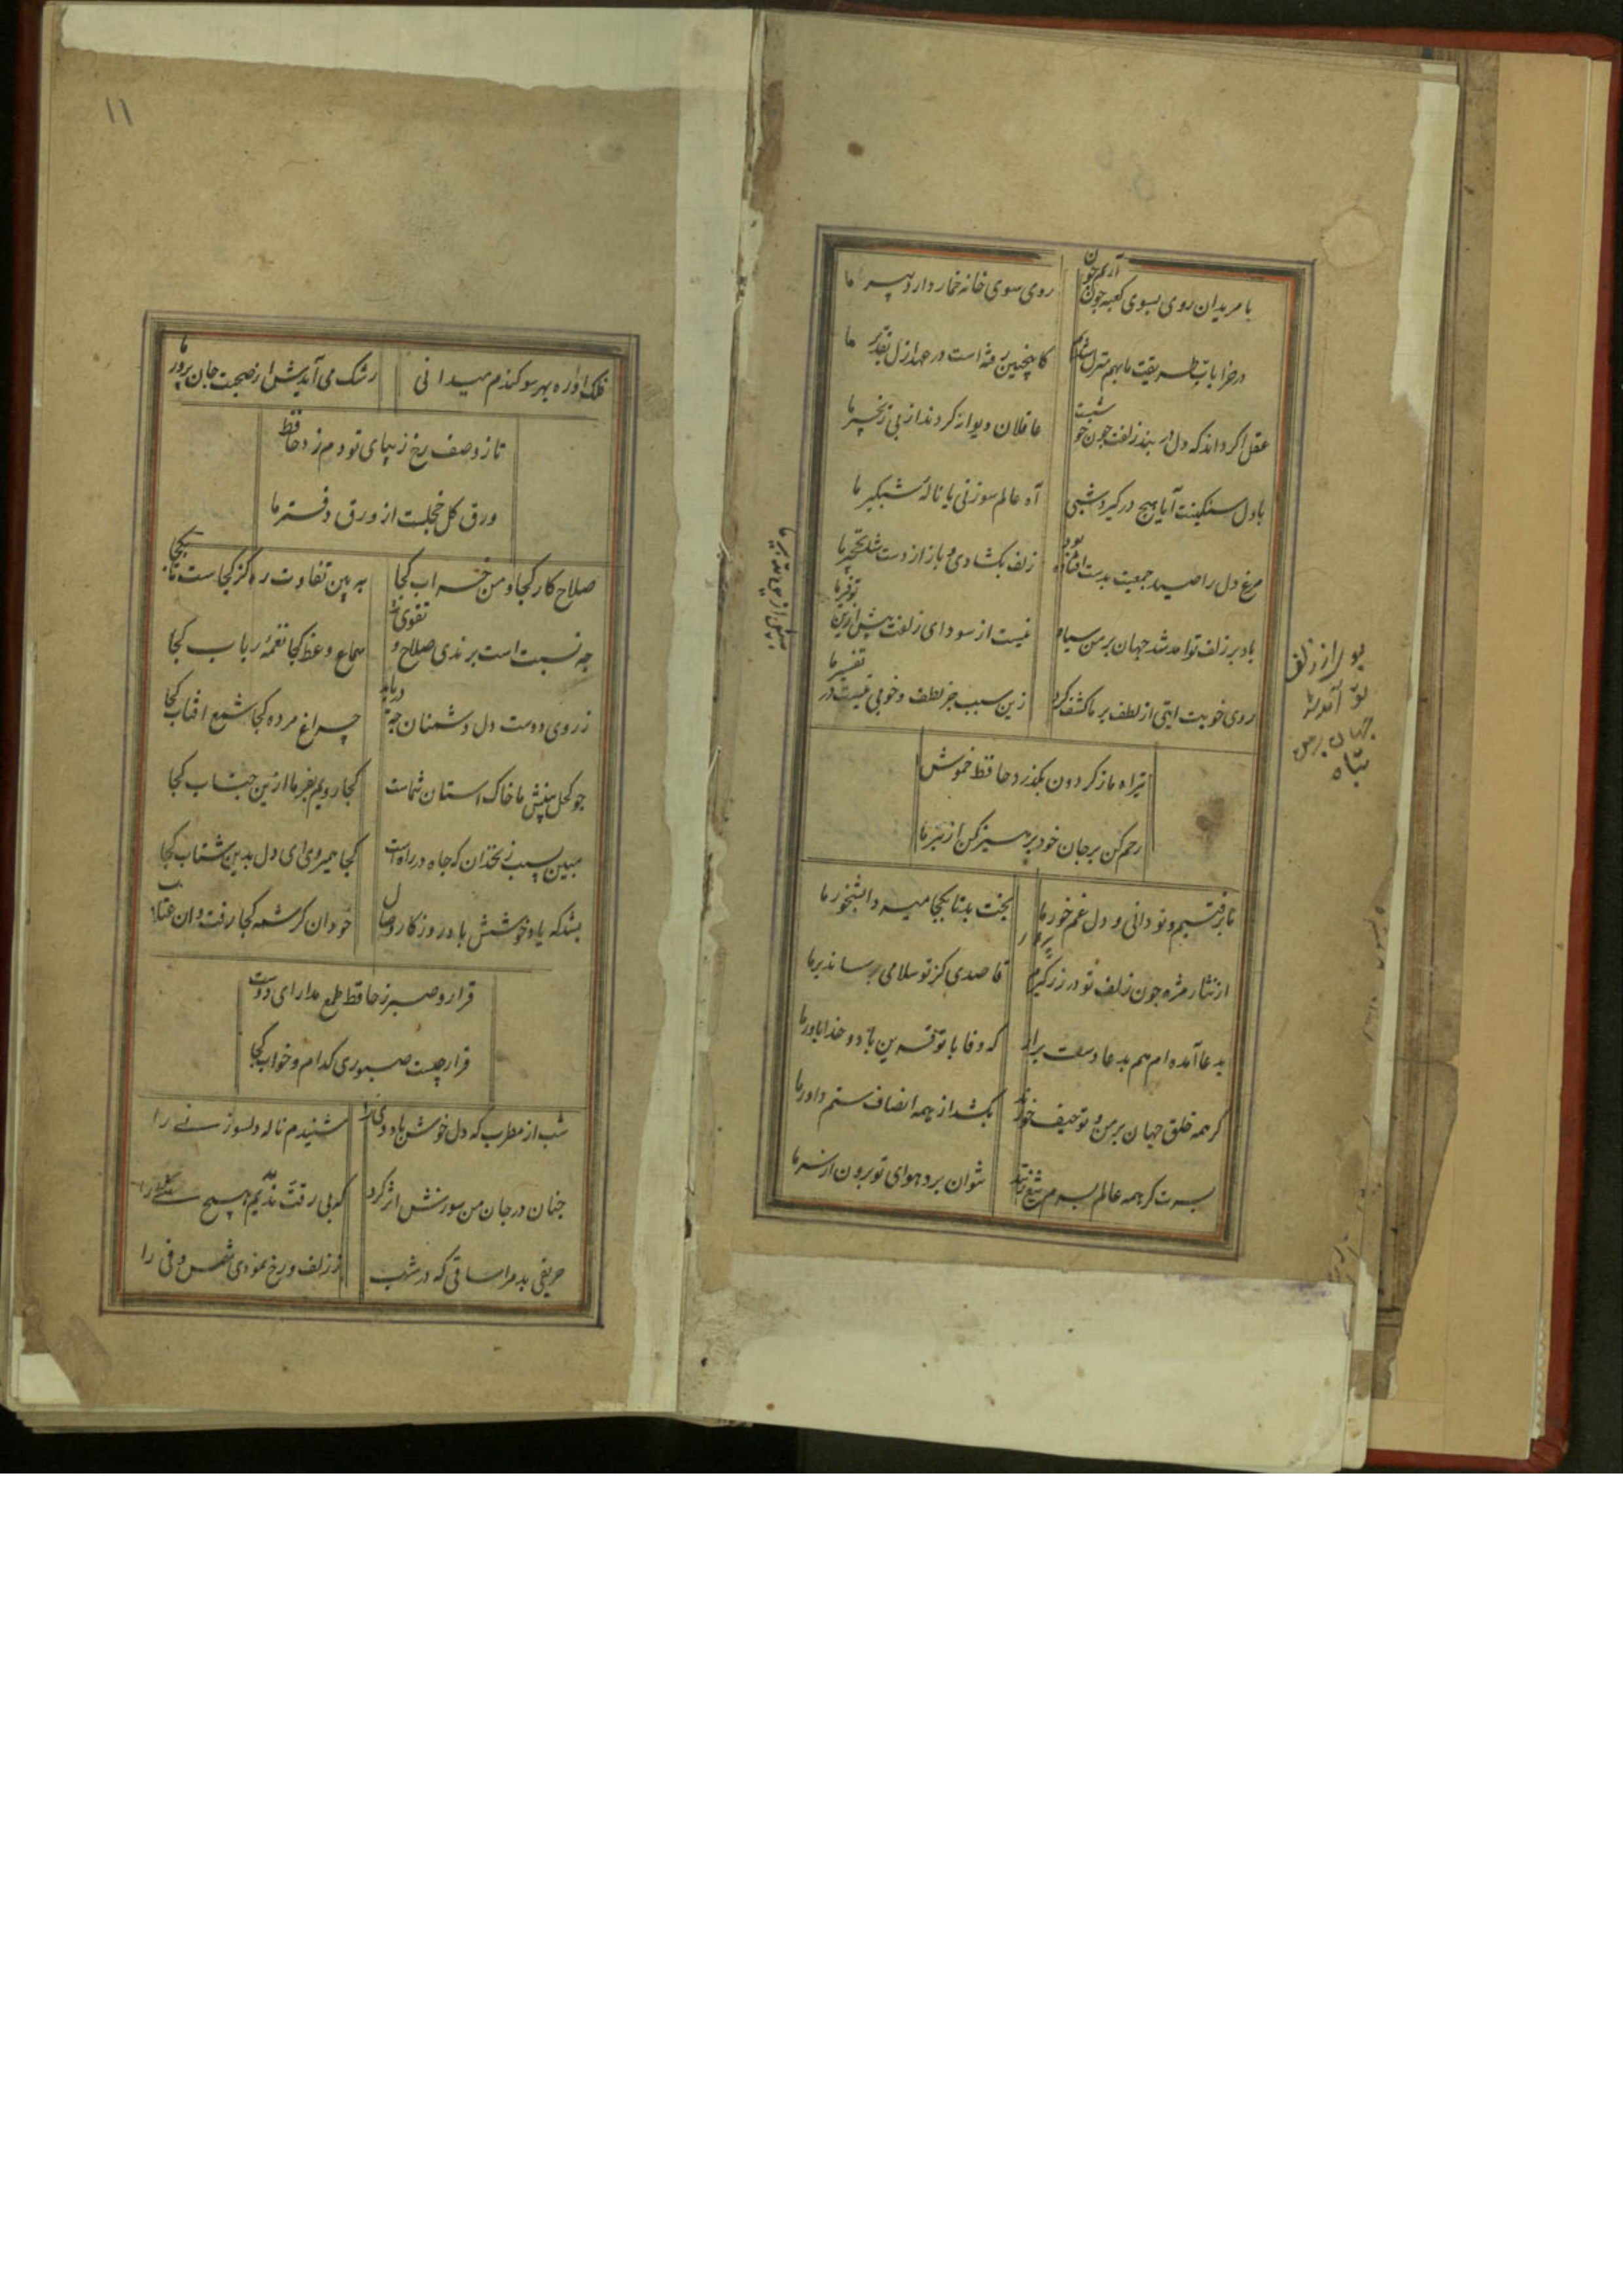 با مریدان روی بسوی کعبه چون آریم چون روی سوی خانه خمار دارد پیر ما
در خرابات طریقت ما بهم منزل شویم کاینچنین رفته است در عهد ازل تقدیر ما
عقل اگر داند که دل در بند زلفت چون خوشست عاقلان دیوانه کردند از پی زنجیر ما
با دل سنکینت آیا هیچ در کیرد شبی آه عالم سوز نی یا ناله شبکیر ما
مرغ دل را صید جمعیت بدست افتاده بود زلف بکشادی و باز از دست شد نخجیر ما
باد بر زلف تو آمد شد جهان بر من سیاه نیست از سودای زلفت بیش ازین توفیر ما
روی خوبت آیتی از لطف بر ما کشف کرد زین سبب جز لطف و خوبی نیست در تفسیر ما
تیر آه ما ز کردون بکذرد حافظ خموش
رحم کن بر جان خود پرهیز کن از تیر ما
ما برفتیم و تو دانی و دل غم خور ما بخت بد تا بکجا میبرد آبشخور ما
از نثار مژه چون زلف تو در زر کیرم قاصدی کز تو سلامی برساند بر ما
بدعا آمده ام هم بدعا دست برار که وفا با تو قرین باد و خدا یاور ما
کر همه خلق جهان بر من و تو حیف خورند بکشد از همه انصاف ستم داور ما
بسرت کر همه عالم بسرم تیغ زنند نتوان برد هوای تو برون از سر ما
بو از زلف
تو آمد شد
جهان بر من
سیاه
۱۱
فلک آواره بهر سو کندم میدانی رشک می آیدش از صحبت جان پرور ما
تا ز وصف رخ زیبای تو دم زد حافظ
ورق کل خجلست از ورق دفتر ما
صلاح کار کجا و من خراب کجا به بین تفاوت ره کز کجاست تا بکجا
چه نسبت است برندی صلاح و تقوی را سماع وعظ کجا نغمه رباب کجا
ز روی دوست دل دشمنان چه دریابد چراغ مرده کجا شمع افتاب کجا
چو کحل بینش ما خاک استان شماست کجا رویم بفرما ازین جناب کجا
مبین بسیب زنخدان که چاه در راه است کجا همیروی ای دل بدین شتاب کجا
بشد که یاد خوشش باد روزکار وصال خود ان کرشمه کجا رفت و ان عتاب
قرار و صبر ز حافظ طمع مدار ای دوست
قرار چیست صبوری کدام و خواب کجا
شب از مطرب که دل خوش باد وی را شنیدم ناله دلسوز نی را
چنان در جان من سوزش اثر کرد که بی رقت ندیدم هیچ شی را
حریفی بد مرا ساقی که در شب ز زلف و رخ نمودی شمس و فی را